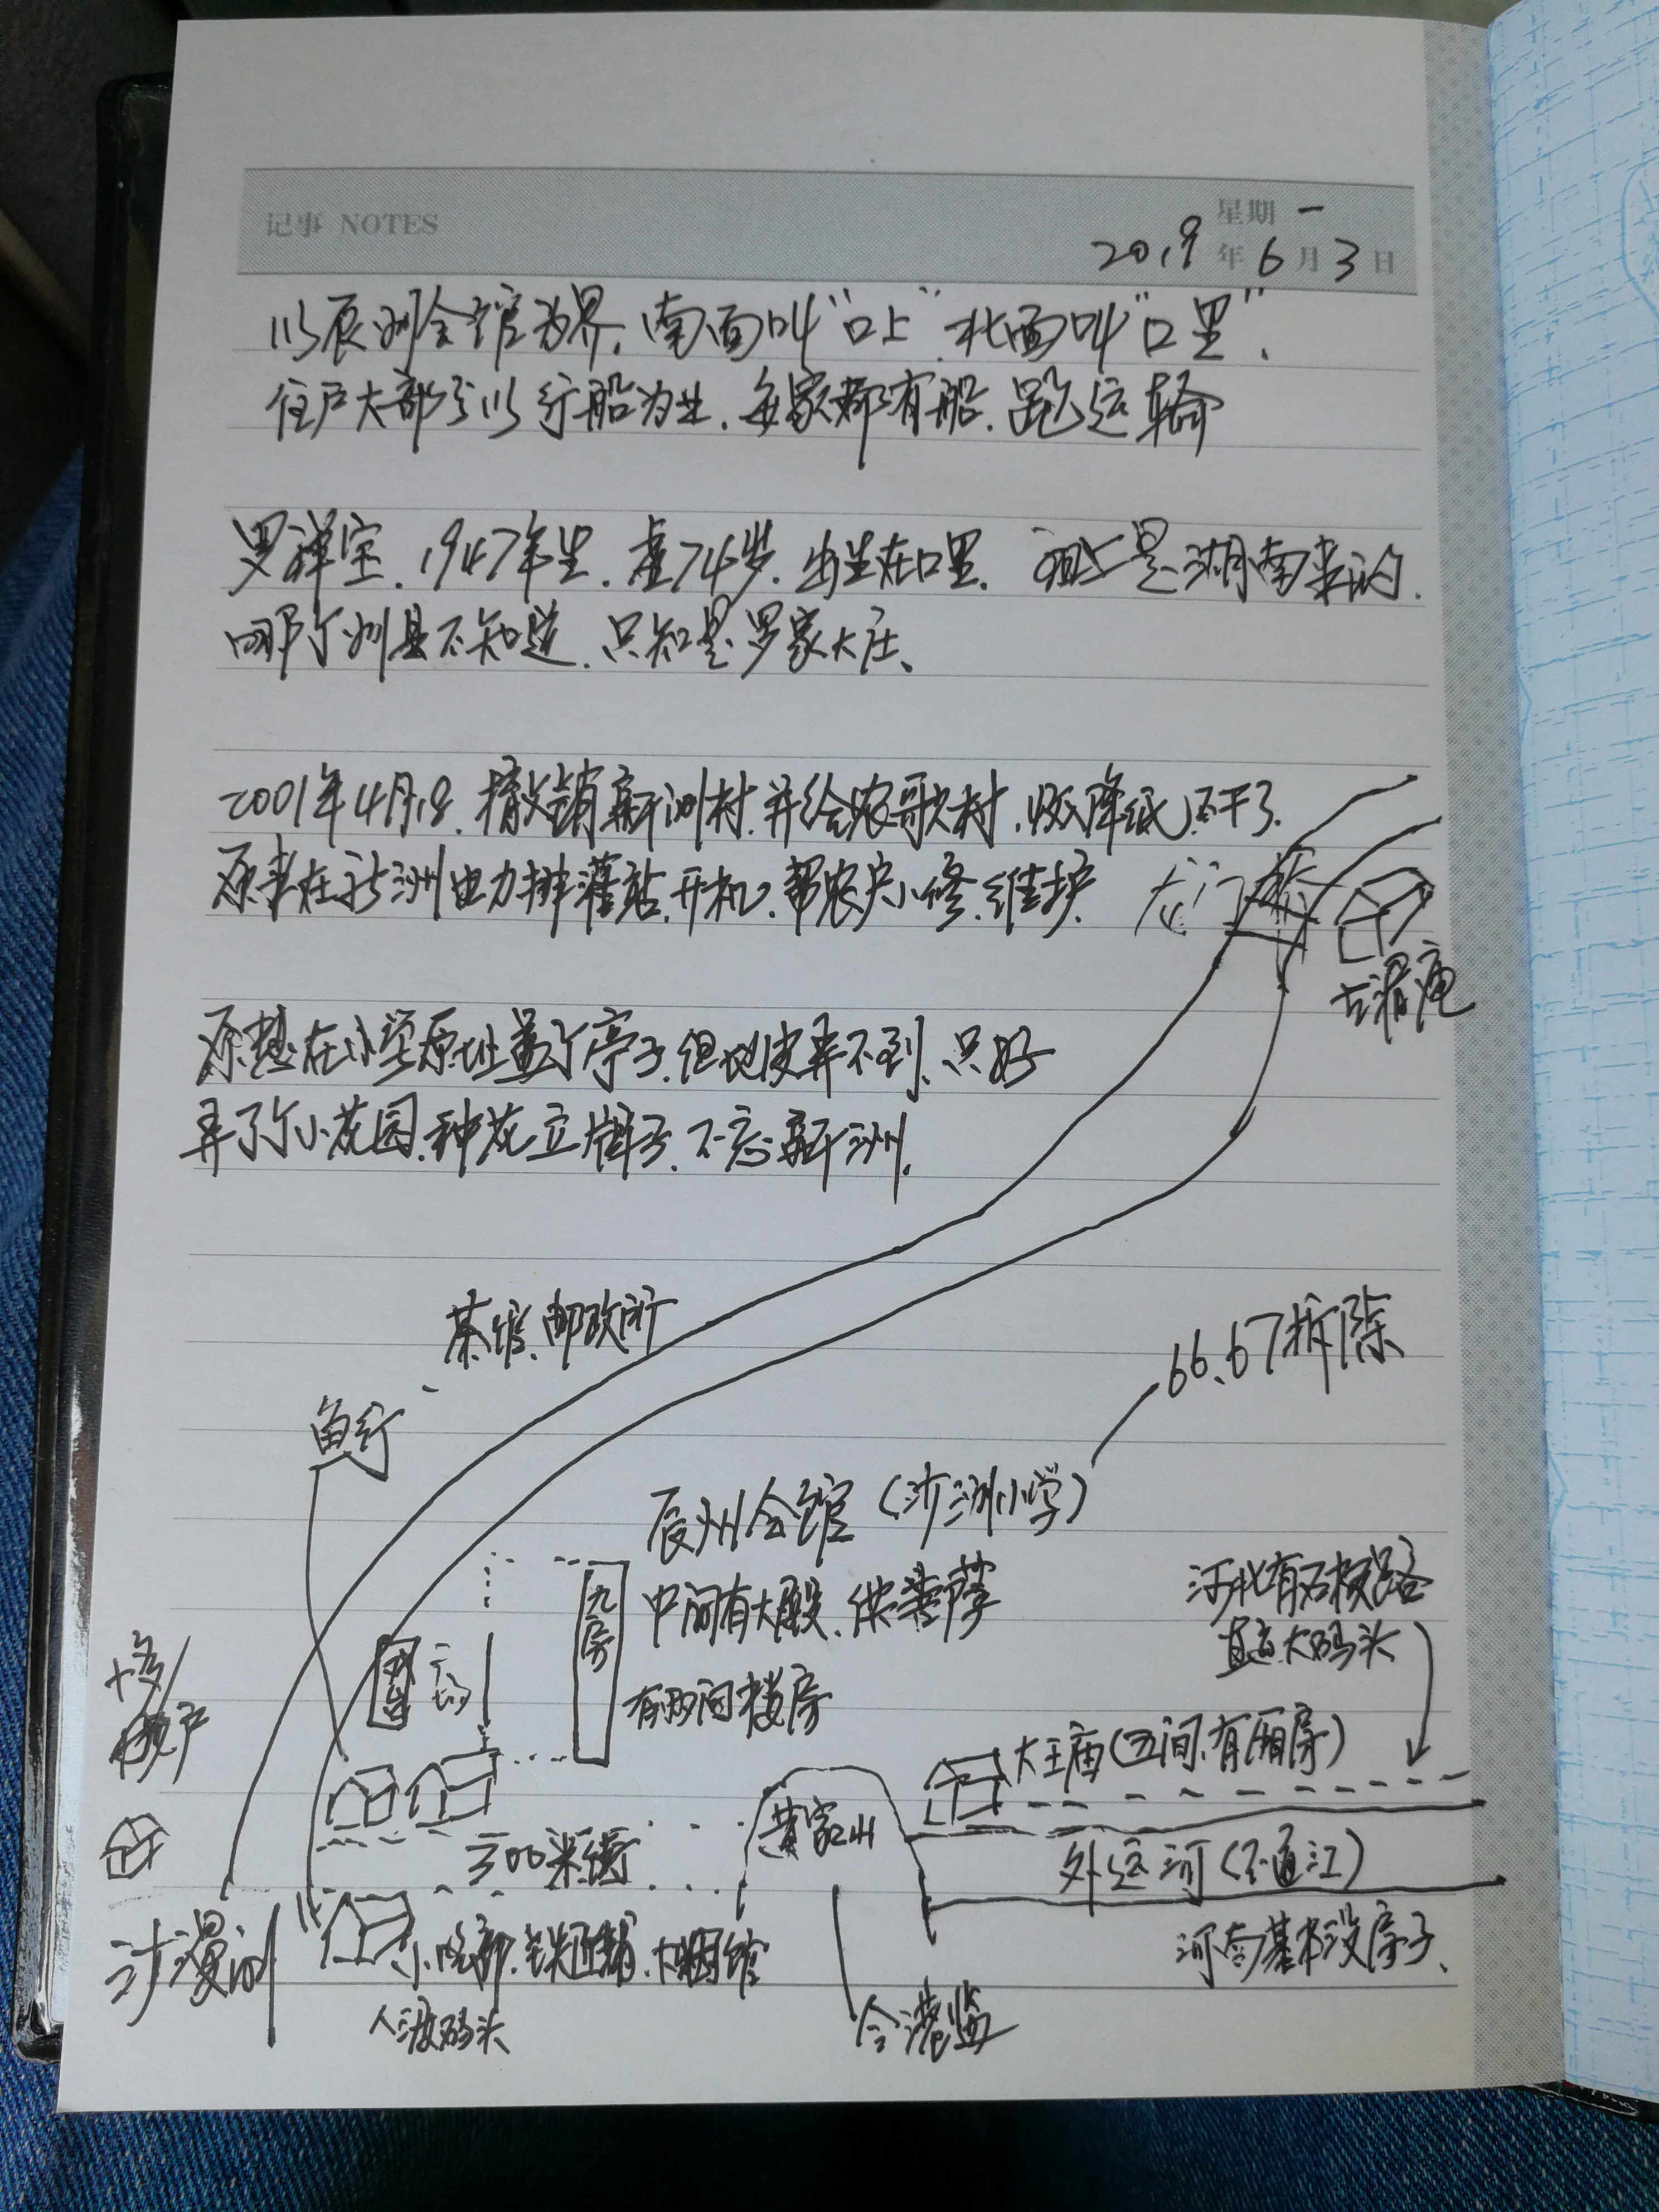 记事 NOTES
星期一
2019年6月3日
以辰州会馆为界，南面叫“口上”，北面叫“口里”，
住户大部分以行船为业，每家都有船，跑运输
罗祥宝，1947年生，虚74岁，出生在口里，祖上是湖南来的，
哪个州县不知道，只知是罗家大庄、
2001年4月18，撤销新洲村，并给农歌村，收入降低，不干了，
原来在新洲电力排灌站，开机，帮农户小修，维护，
龙门桥
古渭庵
原想在小学原址盖个亭子，但地皮弄不到，只好
弄了个小花园，种花立牌子，不忘新洲，
茶馆、邮政所
66、67拆除
鱼行
辰州会馆（沙洲小学）
中间有大殿，供菩萨
有两间楼房
九房
广场
河北有石板路
直通大码头
大王庙（五间，有厢房）
黄家山
300米街
外运河（不通江）
河南基本没房子、
沙漫洲
小吃部，铁匠铺，大烟馆
人渡码头
今港监